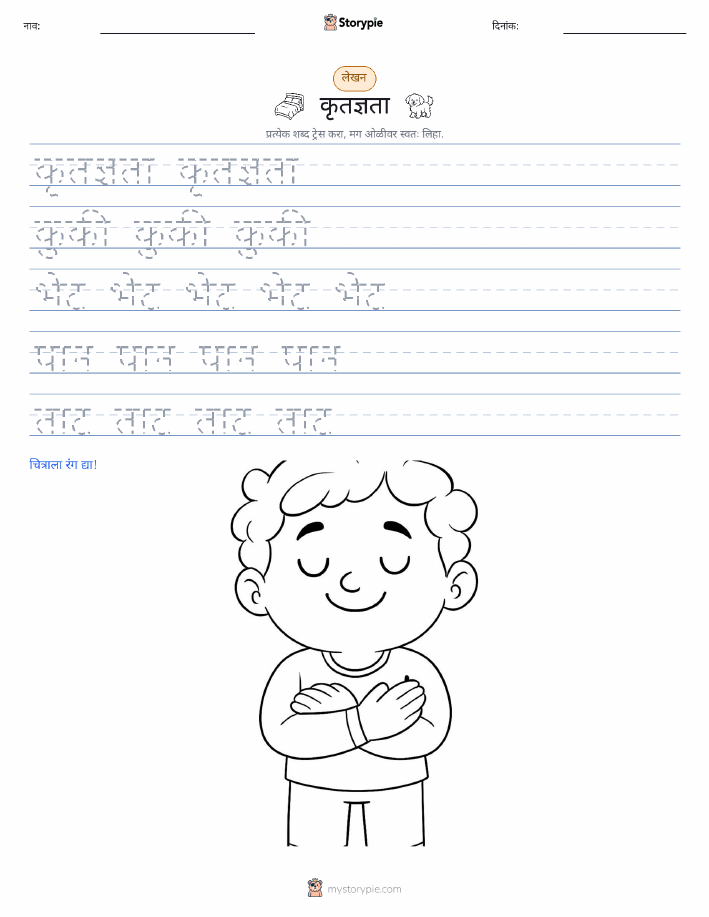 नाव:
Storypie
दिनांक:
लेखन
कृतज्ञता
प्रत्येक शब्द ट्रेस करा, मग ओळीवर स्वतः लिहा.
कृतज्ञता कृतज्ञता
कुकी कुकी कुकी
भेट भेट भेट भेट भेट
पान पान पान पान
ताट ताट ताट ताट
चित्राला रंग द्या!
mystorypie.com